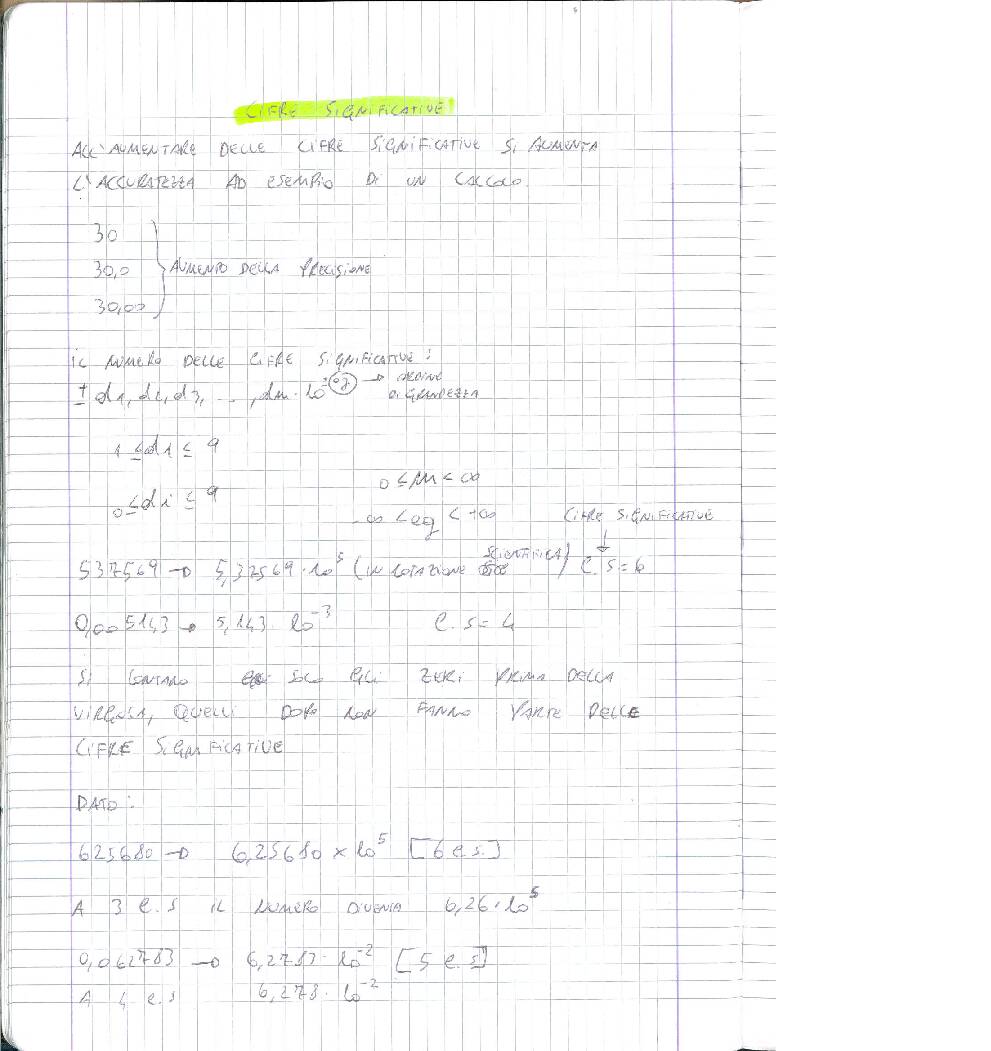 CIFRE SIGNIFICATIVE
ALL'AUMENTARE DELLE CIFRE SIGNIFICATIVE SI AUMENTA
L'ACCURATEZZA AD ESEMPIO DI UN CALCOLO.
30
30,0 AUMENTO DELLA PRECISIONE
30,00
IL NUMERO DELLE CIFRE SIGNIFICATIVE:
± d1, d2, d3, ..., dm · 10 → ORDINE
DI GRANDEZZA
1 ≤ d1 ≤ 9
0 ≤ m < ∞
0 ≤ di ≤ 9
-∞ < eg < +∞ CIFRE SIGNIFICATIVE
537569 → 5,37569 · 10⁵ (IN NOTAZIONE SCIENTIFICA) C.S = 6
0,005143 → 5,143 · 10⁻³ C.S = 4
SI CONTANO SOLO GLI ZERI PRIMA DELLA
VIRGOLA, QUELLI DOPO NON FANNO PARTE DELLE
CIFRE SIGNIFICATIVE
DATO:
625680 → 6,25680 × 10⁵ [6 C.S.]
A 3 C.S IL NUMERO DIVENTA 6,26 · 10⁵
0,062783 → 6,2783 · 10⁻² [5 C.S]
A 4 C.S 6,278 · 10⁻²